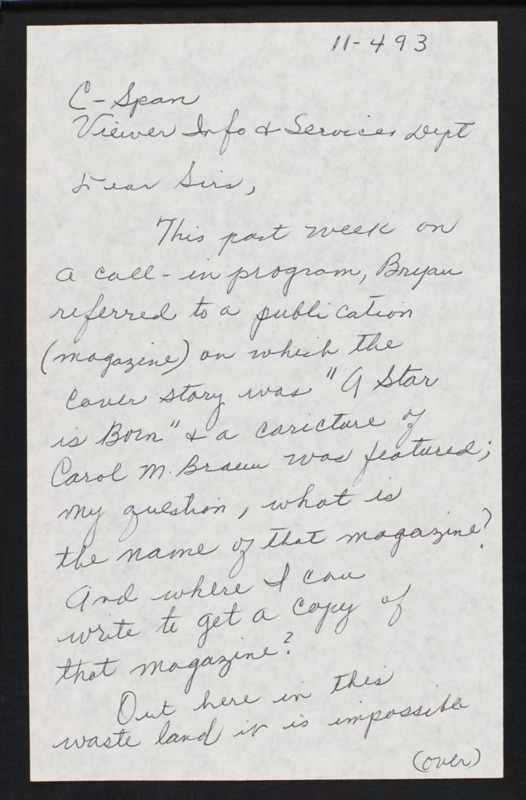 11-493
C-Span
Viewer Info & Services Dept
Dear Sirs,
This past week on
a call-in program, Bryan
referred to a publication
(magazine) on which the
cover story was "A Star
is Born" & a caricture of
Carol M. Braun was featured;
my question, what is
the name of that magazine?
And where I can
write to get a copy of
that magazine?
Out here in this
waste land it is impossible
(over)